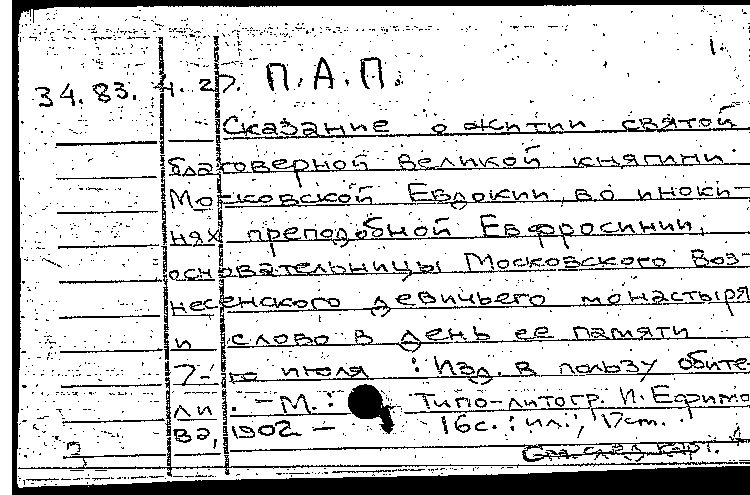 1.
34.83.4.27. П.А.П.
Сказание о житии святой
благоверной великой княгини
Московской Евдокии, во иноки-
нях преподобной Евфросинии,
основательницы Московского Воз-
несенского девичьего монастыря
и слово в день ее памяти
7-го июля : Изд. в пользу обите-
ли. - М. : Типо-литогр. И. Ефимо-
ва, 1902 - 16с. : ил.; 17см.
См. след. карт.
3